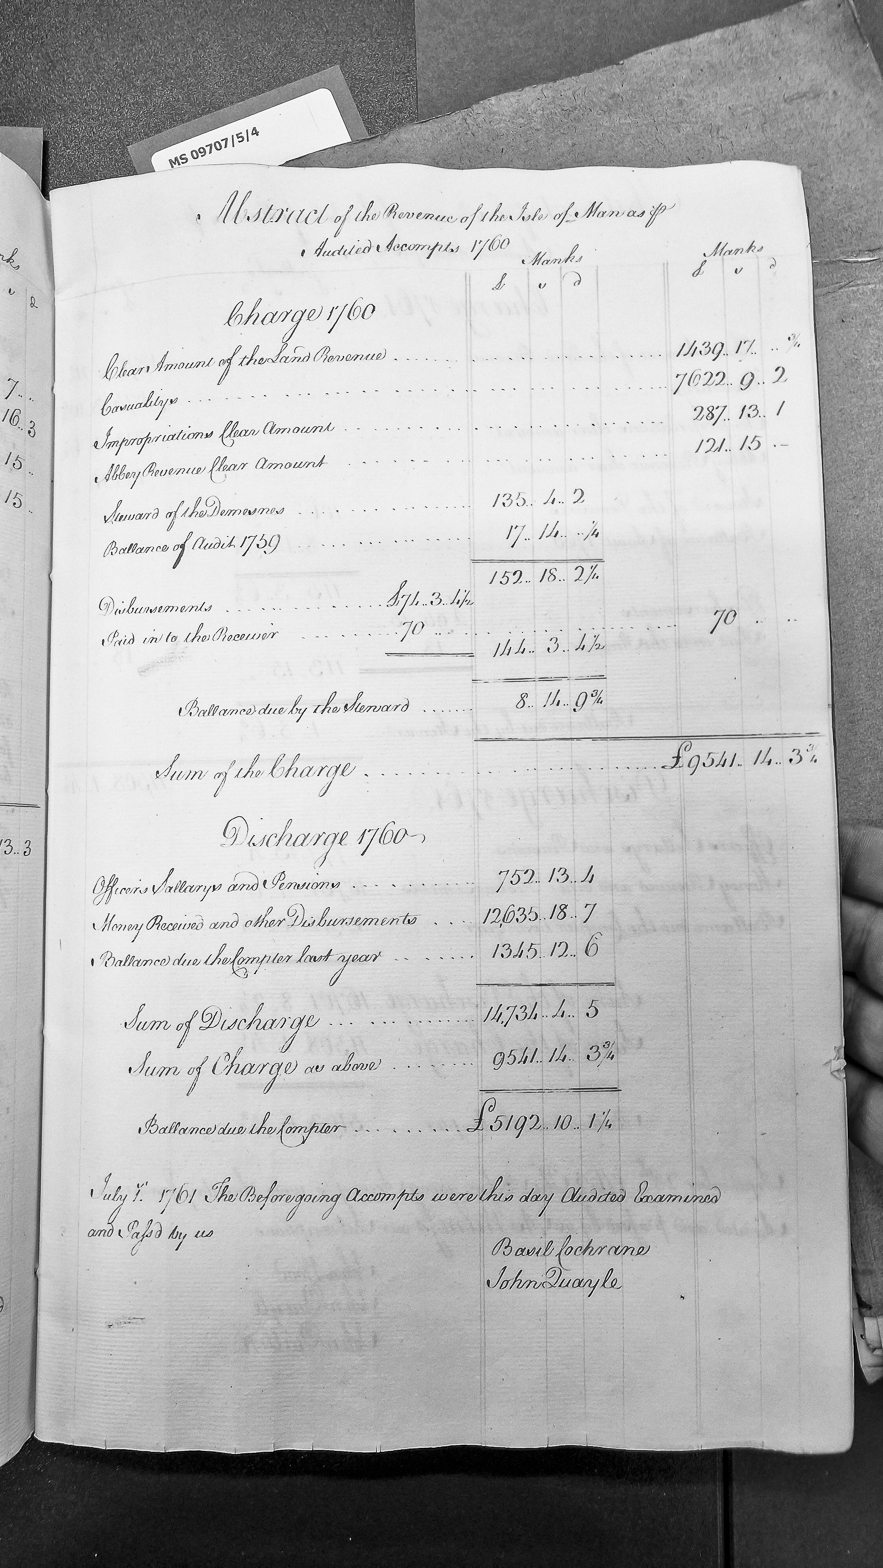 MS 09707/5/4
Abstract of the Revenue of the Isle of Man as ⅌
Audited Accompts 1760
Manks Manks
£ s d £ s d
Charge 1760
Clear Amount of the Land Revenue 1439.. 17.. .. ¾
Casualitys 7622.. 9.. 2
Impropriations Clear Amount 287.. 13.. 1
Abbey Revenue Clear Amount 121.. 15.. –
Steward of the Demesnes 135.. 4.. 2
Ballance of Audit 1759 17.. 14.. .. ¼
152.. 18.. 2¼
Disbursements £74.. 3.. 4½
Paid in to the Receiver 70 .. .. 144.. 3.. 4½ 70 .. ..
Ballance due by the Steward 8.. 14.. 9¾
Sum of the Charge £9541.. 14.. 3¾
Discharge 1760
Officers Sallarys and Pensions 752.. 13.. 4
Money Received and other Disbursements 12,635.. 18.. 7
Ballance due the Compter last year 1345.. 12.. 6
Sum of Discharge 14,734.. 4.. 5
Sum of Charge as above 9541.. 14.. 3¾
Ballance due the Compter £5192.. 10.. 1¼
July 1st. 1761 The Beforegoing Accompts were this day Audited Examined
and Pass'd by us
Basil Cochrane
John Quayle
7..
16.. 3
15..
15
13.. 3